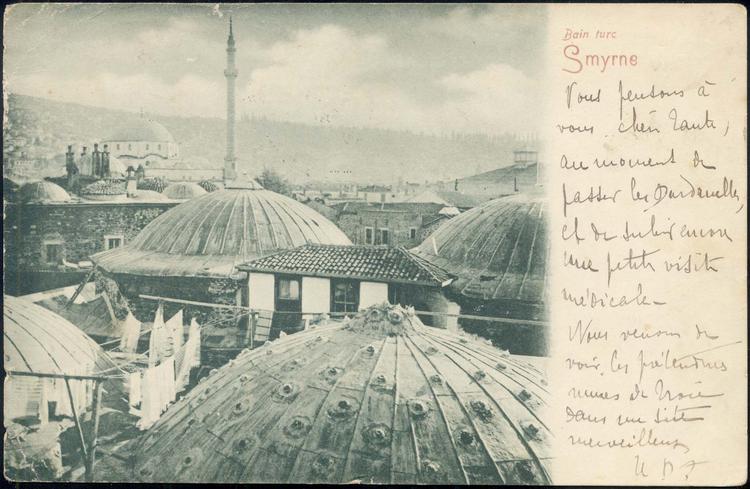 Bain turc
Smyrne
Vous pensons à
vous chère Tante,
au moment de
passer les Dardanelles,
et de subir encore
une petite visite
médicale –
Nous venons de
voir les prétendues
ruines de Troie
dans un site
merveilleux